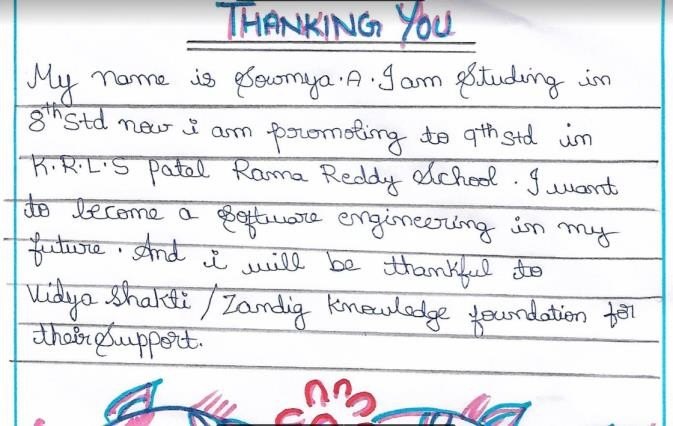 THANKING YOU
My name is Sowmya.A. I am Studing in
8th Std now i am promoting to 9th Std in
K.R.L.S Patel Rama Reddy School. I want
to become a Software engineering in my
future. And i will be thankful to
Vidya Shakti / Zandig Knowledge foundation for
their Support.